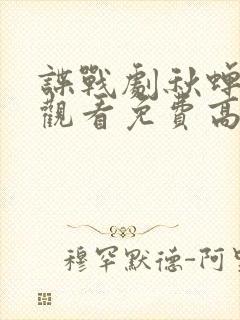 諜戰劇秋蟬
觀看免費高
穆罕默德-阿